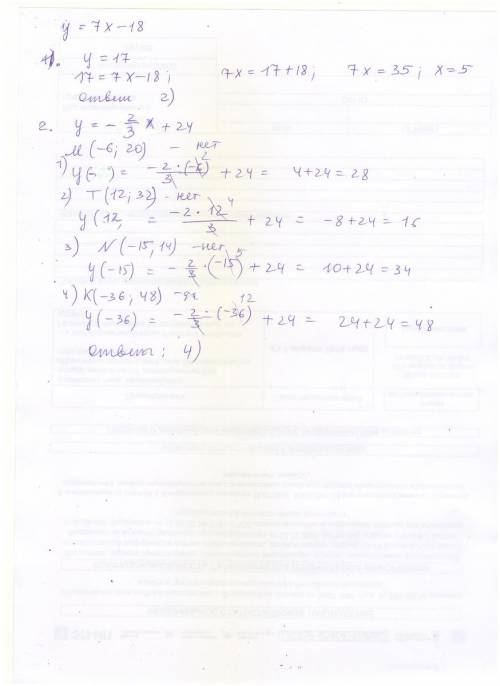 y = 7x - 18
1. y = 17
17 = 7x - 18 ; 7x = 17 + 18 ; 7x = 35 ; x = 5
ответ 2)
2. y = - 2/3 x + 24
M (-6; 20) - нет
1) y(- ) = -2 · (-6)² / 3 + 24 = 4 + 24 = 28
2) T (12; 32) - нет
y (12, = -2 · 12⁴ / 3 + 24 = -8 + 24 = 16
3) N (-15, 14) - нет
y (-15) = - 2/3 · (-15)⁵ + 24 = 10 + 24 = 34
4) K (-36, 48) - да
y (-36) = - 2/3 · (-36)¹² + 24 = 24 + 24 = 48
ответ : 4)